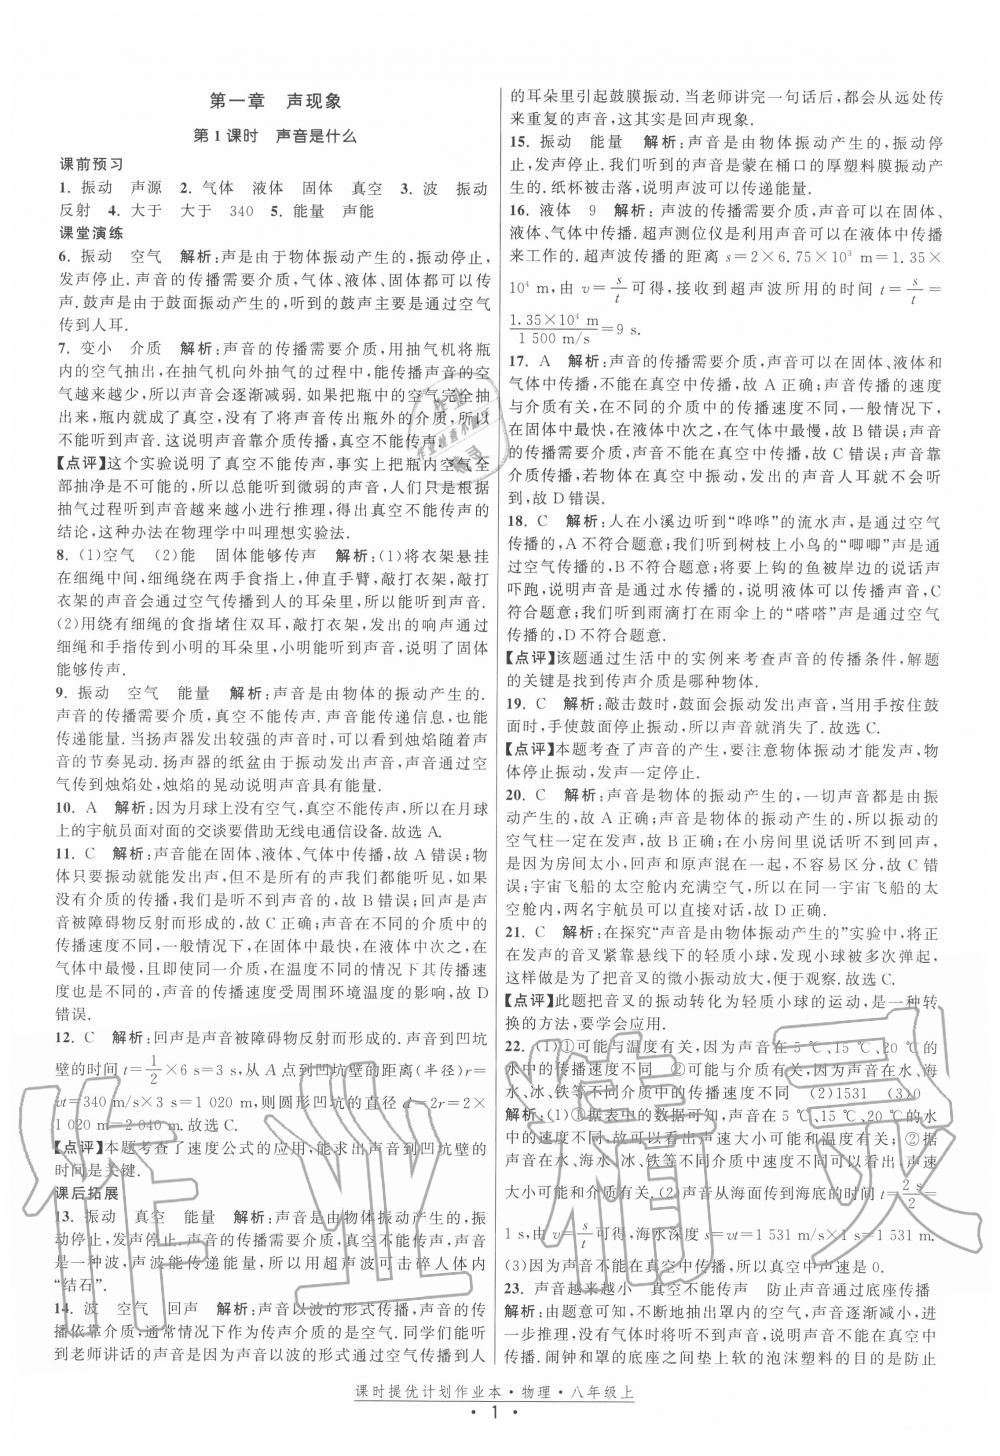 第一章　声现象
第1课时　声音是什么
课前预习
1. 振动　声源　2. 气体　液体　固体　真空　3. 波　振动
反射　4. 大于　大于　340　5. 能量　声能
课堂演练
6. 振动　空气　解析:声是由于物体振动产生的,振动停止,
发声停止.声音的传播需要介质,气体、液体、固体都可以传
声.鼓声是由于鼓面振动产生的,听到的鼓声主要是通过空气
传到人耳.
7. 变小　介质　解析:声音的传播需要介质,用抽气机将瓶
内的空气抽出,在抽气机向外抽气的过程中,能传播声音的空
气越来越少,所以声音会逐渐减弱.如果把瓶中的空气完全抽
出来,瓶内就成了真空,没有了将声音传出瓶外的介质,所以
不能听到声音.这说明声音靠介质传播,真空不能传声.
【点评】这个实验说明了真空不能传声,事实上把瓶内空气全
部抽净是不可能的,所以总能听到微弱的声音,人们只是根据
抽气过程听到声音越来越小进行推理,得出真空不能传声的
结论,这种办法在物理学中叫理想实验法.
8. (1)空气　(2)能　固体能够传声　解析:(1)将衣架悬挂
在细绳中间,细绳绕在两手食指上,伸直手臂,敲打衣架,敲打
衣架的声音会通过空气传播到人的耳朵里,所以能听到声音.
(2)用绕有细绳的食指堵住双耳,敲打衣架,发出的响声通过
细绳和手指传到小明的耳朵里,小明能听到声音,说明了固体
能够传声.
9. 振动　空气　能量　解析:声音是由物体的振动产生的.
声音的传播需要介质,真空不能传声.声音能传递信息,也能
传播能量.当扬声器发出较强的声音时,可以看到烛焰随着声
音的节奏晃动.扬声器的纸盆由于振动发出声音,声音通过空
气传到烛焰处,烛焰的晃动说明声音具有能量.
10. A　解析:因为月球上没有空气,真空不能传声,所以在月球
上的宇航员面对面的交谈要借助无线电通信设备.故选A.
11. C　解析:声音能在固体、液体、气体中传播,故A错误;物
体只要振动就能发出声,但不一定所有的声我们都能听到,如果
没有介质的传播,我们也不能听到声音,故B错误;回声是声
音被障碍物反射而形成的,故C正确;声音在不同的介质中的
传播速度不同,一般情况下,在固体中最快,在液体中次之,在
气体中最慢,即使同一介质,在温度不同的情况下其传播速
度也不同,声音的传播速度受周围环境温度的影响,故D
错误.
12. C　解析:回声是声音被障碍物反射而形成的.声音到凹坑
壁的时间t=1/2×6 s=3 s,从A点到凹坑壁的距离(半径)r=
vt=340 m/s×3 s=1 020 m,则圆形凹坑的直径d=2r=2×
1 020 m=2 040 m.故选C.
【点评】本题考查了速度公式的应用,能求出声音到凹坑壁的
时间是关键.
课后拓展
13. 振动　真空　能量　解析:声音是由物体振动产生的,振动
停止,发声停止.声音的传播需要介质,真空不能传声.声音
是一种波,声波能传递能量,所以用超声波可击碎人体内
“结石”.
14. 波　空气　回声　解析:声音以波的形式传播,声音的传
播依靠介质,通常情况下作为传声介质的是空气.同学们能听
到老师讲话的声音是因为声音以波的形式通过空气传播到人
的耳朵里引起鼓膜振动.当老师讲完一句话后,都会从远处传
来重复的声音,这其实是回声现象.
15. 振动　能量　解析:声音是由物体振动产生的,振动停
止,发声停止.我们听到的声音是蒙在桶口的厚塑料膜振动产
生的.纸杯被击落,说明声波可以传递能量.
16. 液体　9　解析:声波的传播需要介质,声音可以在固体、
液体、气体中传播.超声测位仪是利用声音可以在液体中传播
来工作的.超声波传播的距离s=2×6.75×10³ m=1.35×
10⁴ m,由v=s/t可得,接收到超声波所用的时间t=s/v=
1.35×10⁴ m/1 500 m/s=9 s.
17. A　解析:声音的传播需要介质,声音可以在固体、液体和
气体中传播,不能在真空中传播,故A正确;声音传播的速度
与介质有关,在不同的介质中的传播速度不同,一般情况下,
在固体中最快,在液体中次之,在气体中最慢,故B错误;声音
的传播需要介质,声音不能在真空中传播,故C错误;声音靠
介质传播,若物体在真空中振动,发出的声音人耳就不会听
到,故D错误.
18. C　解析:人在小溪边听到“哗哗”的流水声,是通过空气
传播的,A不符合题意;我们听到树枝上小鸟的“唧唧”声是通
过空气传播的,B不符合题意;将要上钩的鱼被岸边的说话声
吓跑,说明声音是通过水传播的,说明液体可以传播声音,C
符合题意;我们听到雨滴打在雨伞上的“嗒嗒”声是通过空气
传播的,D不符合题意.
【点评】该题通过生活中的实例来考查声音的传播条件,解题
的关键是找到传声介质是哪种物体.
19. C　解析:敲击鼓时,鼓面会振动发出声音,当用手按住鼓
面时,手使鼓面停止振动,所以声音就消失了.故选C.
【点评】本题考查了声音的产生,要注意物体振动才能发声,物
体停止振动,发声一定停止.
20. C　解析:声音是物体的振动产生的,一切声音都是由振
动产生的,故A正确;声音是物体的振动产生的,所以振动的
空气柱一定在发声,故B正确;在小房间里说话听不到回声,
是因为房间太小,回声和原声混在一起,不易区分,故C错
误;宇宙飞船的太空舱内充满空气,所以在同一宇宙飞船的太
空舱内,两名宇航员可以直接对话,故D正确.
21. C　解析:在探究“声音是由物体振动产生的”实验中,将正
在发声的音叉紧靠悬线下的轻质小球,发现小球被多次弹开.
这样做是为了把音叉的微小振动放大,便于观察.故选C.
【点评】此题把音叉的振动转化为轻质小球的运动,是一种转
换的方法,要学会应用.
22. (1)①可能与温度有关,因为声音在5 ℃、15 ℃、20 ℃的
水中的传播速度不同　②可能与介质有关,因为声音在水、海
水、冰、铁等不同介质中传播速度不同　(2)1531　(3)0
解析:(1)①据表中的数据可知,声音在5 ℃、15 ℃、20 ℃的水
中的传播速度不同,故可以看出声速大小可能和温度有关;②据
声音在水、海水、冰、铁等介质中速度不同,可以看出声速
大小可能和介质的种类有关.(2)声音从海面传到海底的时间t=2 s/2=
1 s,由v=s/t可得,海水深度s=vt=1 531 m/s×1 s=1 531 m.
(3)因为声音不能在真空中传播,所以真空中声速是0.
23. 声音越来越小　真空不能传声　防止声音通过底座传播
解析:由题意可知,不断地抽出罩内的空气,声音逐渐减小,进
一步推理,没有气体时将听不到声音,说明声音不能在真空中
传播.闹钟和罩的底座之间垫上软的泡沫塑料的目的是防止
课时提优计划作业本·物理·八年级上
· 1 ·
作业精灵